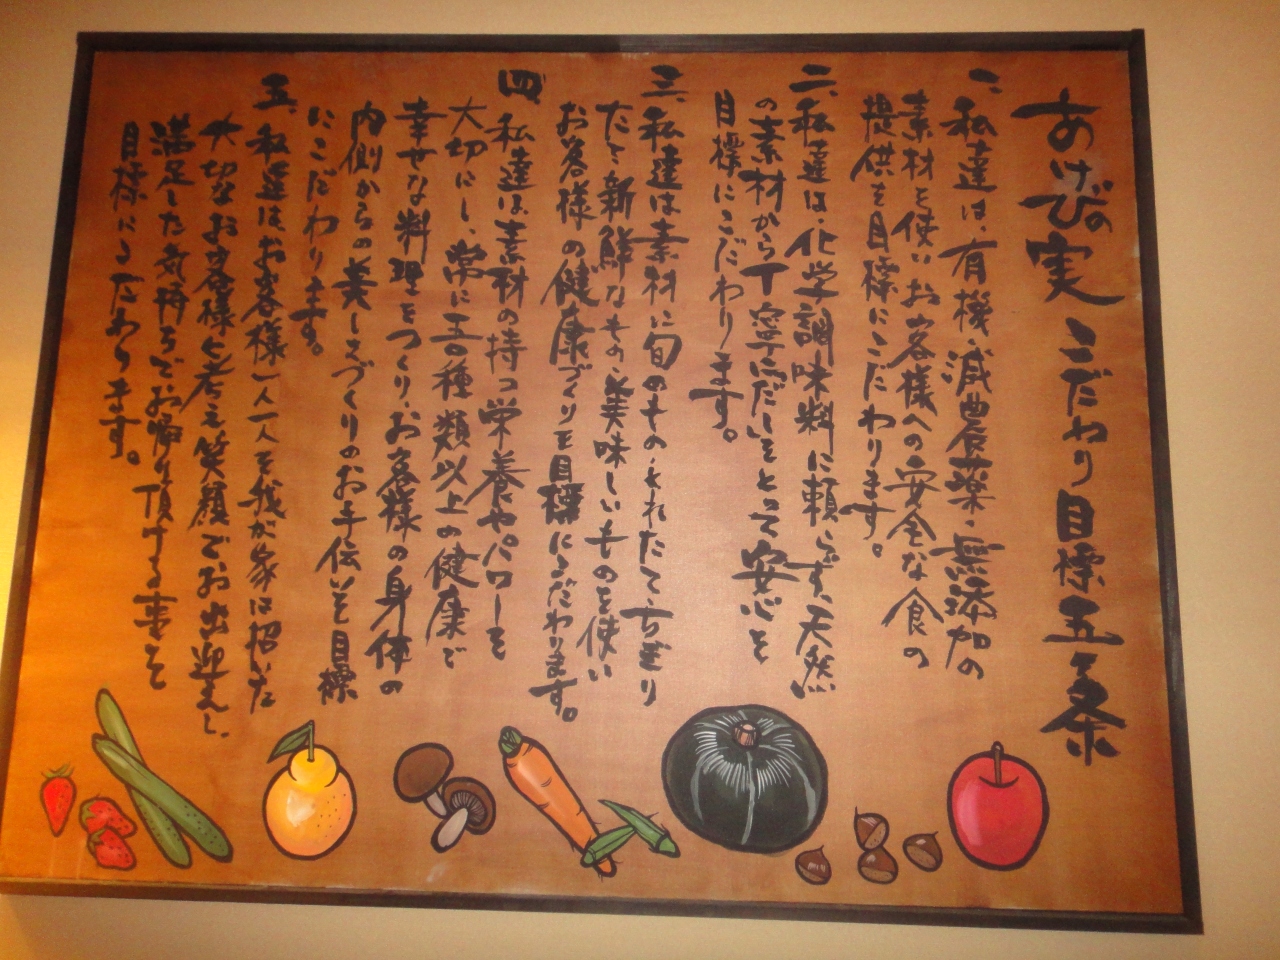 あけびの実 こだわり目標五ヶ条
一、私達は、有機・減農薬・無添加の
素材を使いお客様への安全な食の
提供を目標にこだわります。
二、私達は、化学調味料に頼らず、天然
の素材から丁寧にだしをとって安心を
目標にこだわります。
三、私達は素材に旬のものとれたてちぎり
たて新鮮なもの、美味しいものを使い
お客様の健康づくりを目標にこだわります。
四、私達は、素材の持つ栄養やパワーを
大切にし、常に五〇種類以上の健康で
幸せな料理をつくり、お客様の身体の
内側からの美しさづくりのお手伝いを目標
にこだわります。
五、私達は、お客様一人一人を我が家に招いた
大切なお客様と考え笑顔でお出迎えし、
満足した気持ちでお帰り頂ける事を
目標にこだわります。